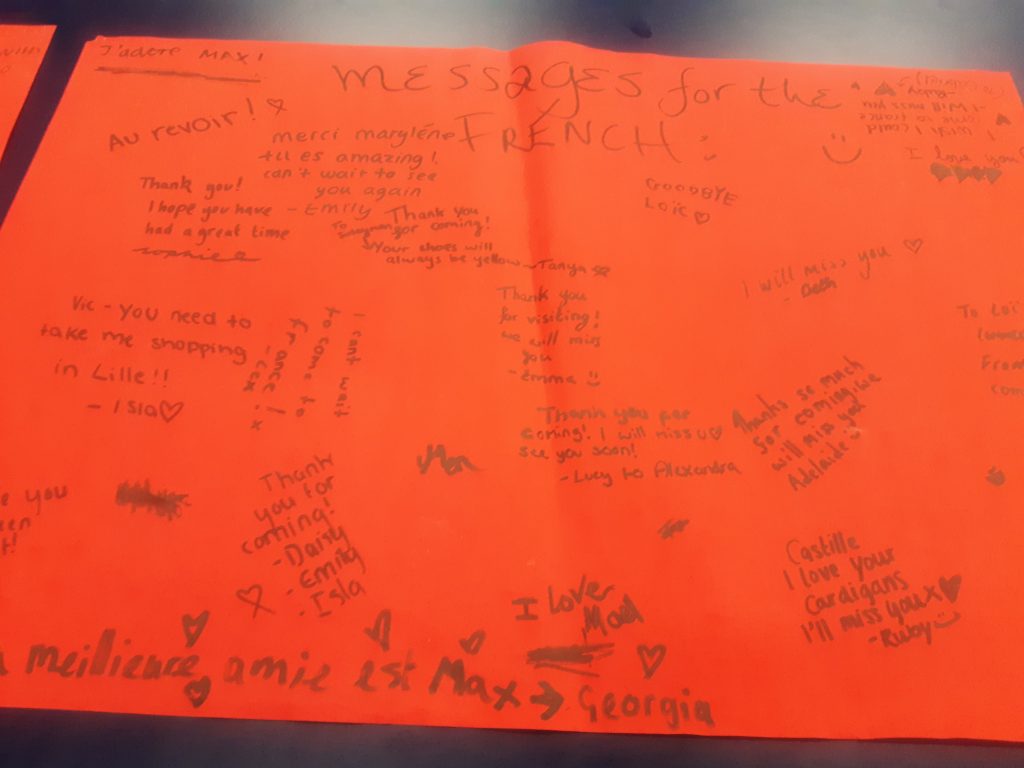 J'adore MAX!
MESSAGES for the
FRENCH
Au revoir!
merci marylène
tu es amazing!
can't wait to see
you again
- Emily
Thank you!
I hope you have
had a great time
sophie
Thank you
for coming!
Your shoes will
always be yellow
- Tanya
GOODBYE
LOÏC
I wish I could
come to France
I will miss you
- Ruby
I love you
I will miss you
- Beth
Vic - you need to
take me shopping
in Lille!!
- Isla
I cant wait
to come to
france!
Thank you
for visiting!
we will miss
you
- emma
Thank you for
coming! I will miss u
see you soon!
- Lucy to Alexandra
Thanks so much
for coming, we
will miss you
Adelaide
To Loï
From
Thank
you for
coming!
- Daisy
- Emily
- Isla
I Lover
Mael
Castille
I love your
Cardigans
I'll miss you x
- Ruby
meillieure amie est Max → Georgia